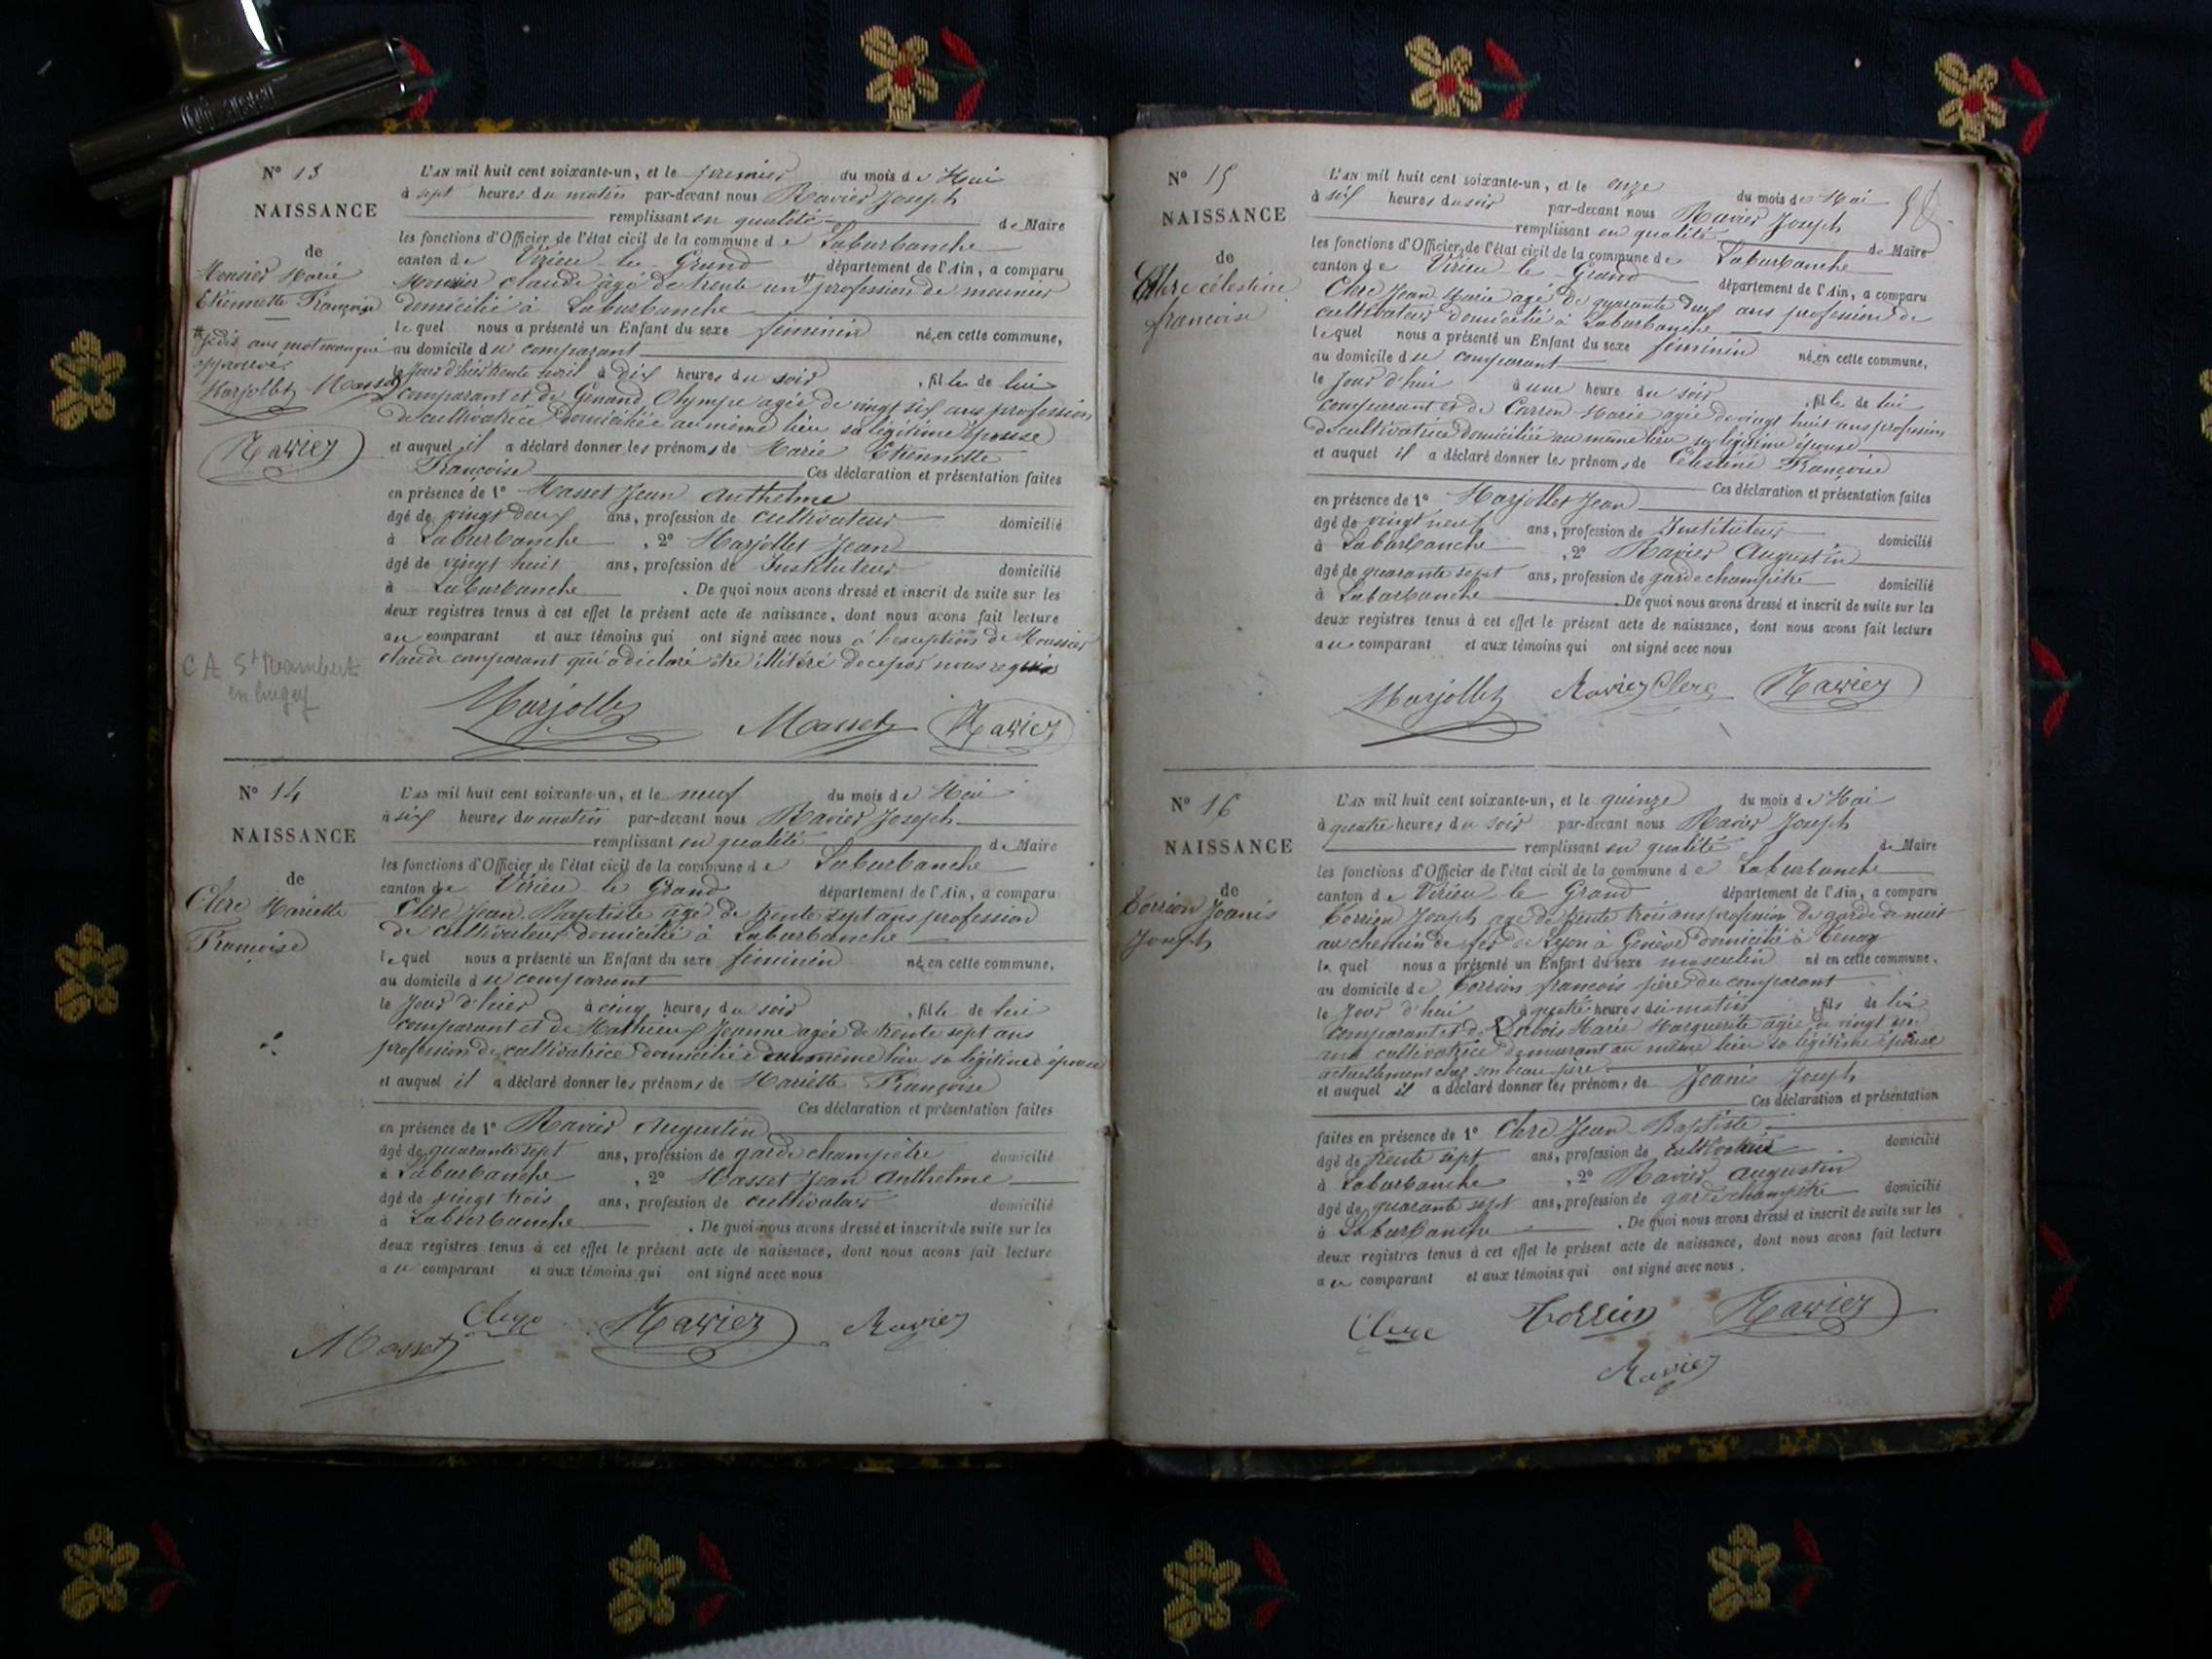 N° 13
NAISSANCE
de
Monsier Marie
Etiennette Françoise
# je dis ans mot manqué
approuvé.
Marjollet Masset
Ravier
L'AN mil huit cent soixante-un, et le premier du mois de Mai
à sept heures du matin par-devant nous Ravier Joseph
remplissant en qualité de Maire
les fonctions d'Officier de l'état civil de la commune de Laburbanche
canton de Virieu le Grand département de l'Ain, a comparu
Monsier claude âgé de trente un # profession de meunier
domicilié à Laburbanche
lequel nous a présenté un Enfant du sexe féminin né, en cette commune,
au domicile du comparant
le jour d'hier trente avril à dix heures du soir , fille de lui
comparant et de Genand Olympe agée de vingt six ans profession
de cultivatrice domiciliée au même lieu sa légitime épouse
et auquel il a déclaré donner les prénoms de Marie Etiennette
Françoise Ces déclaration et présentation faites
en présence de 1° Masset Jean Anthelme
âgé de vingt deux ans, profession de cultivateur domicilié
à Laburbanche , 2° Marjollet Jean
âgé de vingt huit ans, profession de Instituteur domicilié
à Laburbanche . De quoi nous avons dressé et inscrit de suite sur les
deux registres tenus à cet effet le présent acte de naissance, dont nous avons fait lecture
au comparant et aux témoins qui ont signé avec nous à l'exception de Monsier
claude comparant qui a déclaré être illitéré de ce par nous requis
CA St Rambert
en bugey
Marjollet Masset Ravier
N° 14
NAISSANCE
de
Clerc Mariette
Françoise
L'AN mil huit cent soixante-un, et le neuf du mois de Mai
à six heures du matin par-devant nous Ravier Joseph
remplissant en qualité de Maire
les fonctions d'Officier de l'état civil de la commune de Laburbanche
canton de Virieu le Grand département de l'Ain, a comparu
Clerc Jean Baptiste agé de trente sept ans profession
de cultivateur domicilié à Laburbanche
lequel nous a présenté un Enfant du sexe féminin né, en cette commune,
au domicile du comparant
le Jour d'hier à cinq heures du soir , fille de lui
comparant et de Mathieux Jeanne agée de trente sept ans
profession de cultivatrice domiciliée au même lieu sa légitime épouse
et auquel il a déclaré donner les prénoms de Mariette Françoise
Ces déclaration et présentation faites
en présence de 1° Ravier Augustin
âgé de quarante sept ans, profession de garde champêtre domicilié
à Laburbanche , 2° Masset Jean Anthelme
âgé de vingt trois ans, profession de cultivateur domicilié
à Laburbanche . De quoi nous avons dressé et inscrit de suite sur les
deux registres tenus à cet effet le présent acte de naissance, dont nous avons fait lecture
au comparant et aux témoins qui ont signé avec nous
Masset Clerc Ravier Ravier
N° 15
NAISSANCE
de
Clerc célestine
françoise
L'AN mil huit cent soixante-un, et le onze du mois de Mai
à six heures du soir par-devant nous Ravier Joseph
remplissant en qualité de Maire
les fonctions d'Officier de l'état civil de la commune de Laburbanche
canton de Virieu le Grand département de l'Ain, a comparu
Clerc Jean Marie agé de quarante deux ans profession de
cultivateur domicilié à Laburbanche
lequel nous a présenté un Enfant du sexe féminin né, en cette commune,
au domicile du comparant
le Jour d'hui à une heure du soir , fille de lui
comparant et de Carron Marie agée de vingt huit ans profession
de cultivatrice domiciliée au même lieu sa légitime épouse
et auquel il a déclaré donner les prénoms de Célestine Françoise
Ces déclaration et présentation faites
en présence de 1° Marjollet Jean
âgé de vingt neuf ans, profession de Instituteur domicilié
à Laburbanche , 2° Ravier Augustin
âgé de quarante sept ans, profession de garde champêtre domicilié
à Laburbanche . De quoi nous avons dressé et inscrit de suite sur les
deux registres tenus à cet effet le présent acte de naissance, dont nous avons fait lecture
au comparant et aux témoins qui ont signé avec nous
Marjollet Ravier Clerc Ravier
N° 16
NAISSANCE
de
Corrion Joanis
Joseph
L'AN mil huit cent soixante-un, et le quinze du mois de Mai
à quatre heures du soir par-devant nous Ravier Joseph
remplissant en qualité de Maire
les fonctions d'Officier de l'état civil de la commune de Laburbanche
canton de Virieu le Grand département de l'Ain, a comparu
Corrion Joseph agé de trente trois ans profession de garde de nuit
au chemin de fer de Lyon à Genève domicilié à Tenay
lequel nous a présenté un Enfant du sexe masculin né en cette commune,
au domicile de Corrion françois père du comparant
le Jour d'hui à quatre heures du matin , fils de lui
comparant et de Dubois Marie Marguerite agée de vingt un
ans cultivatrice demeurant au même lieu sa légitime épouse
actuellement chez son beau père
et auquel il a déclaré donner les prénoms de Joanis Joseph
Ces déclaration et présentation
faites en présence de 1° Clerc Jean Baptiste
âgé de trente sept ans, profession de cultivateur domicilié
à Laburbanche , 2° Ravier Augustin
âgé de quarante sept ans, profession de garde champêtre domicilié
à Laburbanche . De quoi nous avons dressé et inscrit de suite sur les
deux registres tenus à cet effet le présent acte de naissance, dont nous avons fait lecture
au comparant et aux témoins qui ont signé avec nous .
Clerc Corrion Ravier
Ravier